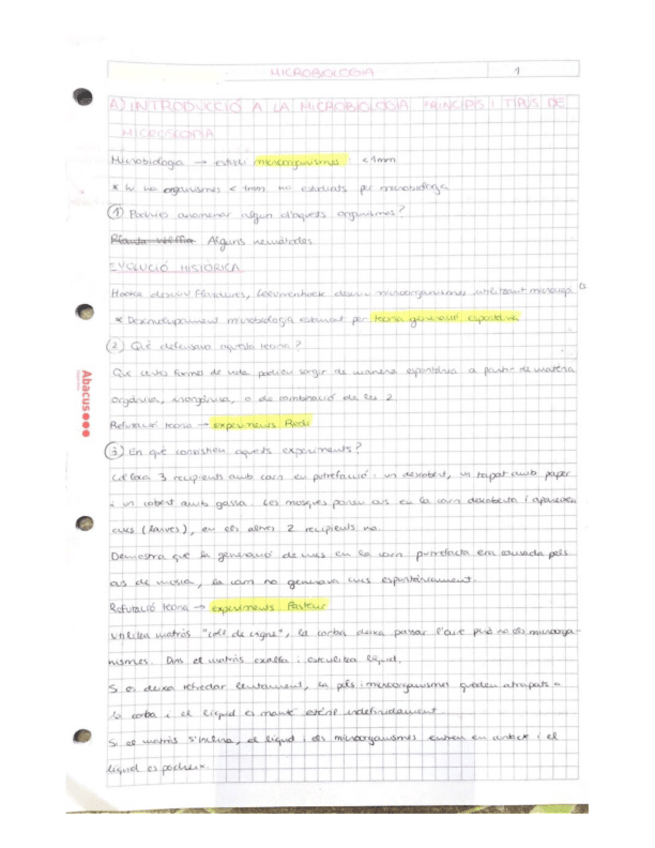 MICROBIOLOGIA 1
A) INTRODUCCIÓ A LA MICROBIOLOGIA PRINCIPIS I TIPUS DE
MICROSCOPIA
Microbiologia → estudi microorganismes <1mm
* hi ha organismes < 1mm no estudiats per microbiologia
① Podríeu anomenar algun d'aquets organismes?
Alguns nemàtodes
EVOLUCIÓ HISTÒRICA
Hooke descriu floridures, Leeuwenhoek descriu microorganismes utilitzant microscopi
* Desenvolupament microbiologia estancat per teoria generació espontània
② Què defensava aquesta teoria?
Que certes formes de vida podien sorgir de manera espontània a partir de matèria
orgànica, inorgànica, o de combinació de les 2.
Refutació teoria → experiments Redi
③ En què consistien aquets experiments?
3 recipients amb carn en putrefacció: un descobert, un tapat amb paper
i un cobert amb gassa. Les mosques ponen ous en la carn descoberta i apareixen
cucs (larves), en els altres 2 recipients no.
Demostra que la generació de cucs en la carn putrefacta era causada pels
ous de mosca, la carn no generava cucs espontàniament.
Refutació teoria → experiments Pasteur
Utilitza matràs "coll de cigne", la corba deixa passar l'aire però no els microorga-
nismes. Dins el matràs escalfa i esterilitza líquid.
Si es deixa refredar lentament, la pols i microorganismes queden atrapats a
la corba i el líquid es manté estèril indefinidament.
Si el matràs s'inclina, el líquid i els microorganismes entren en contacte i el
líquid es podreix.
Abacus